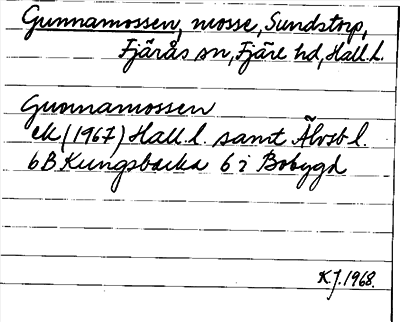 Gunnamossen, mosse, Sundstorp,
Fjärås sn, Fjäre hd, Hall.l.
Gunnamossen
ek (1967) Hall.l. samt Älvsb l.
6B Kungsbacka 6 i Bobygd
K.J. 1968.